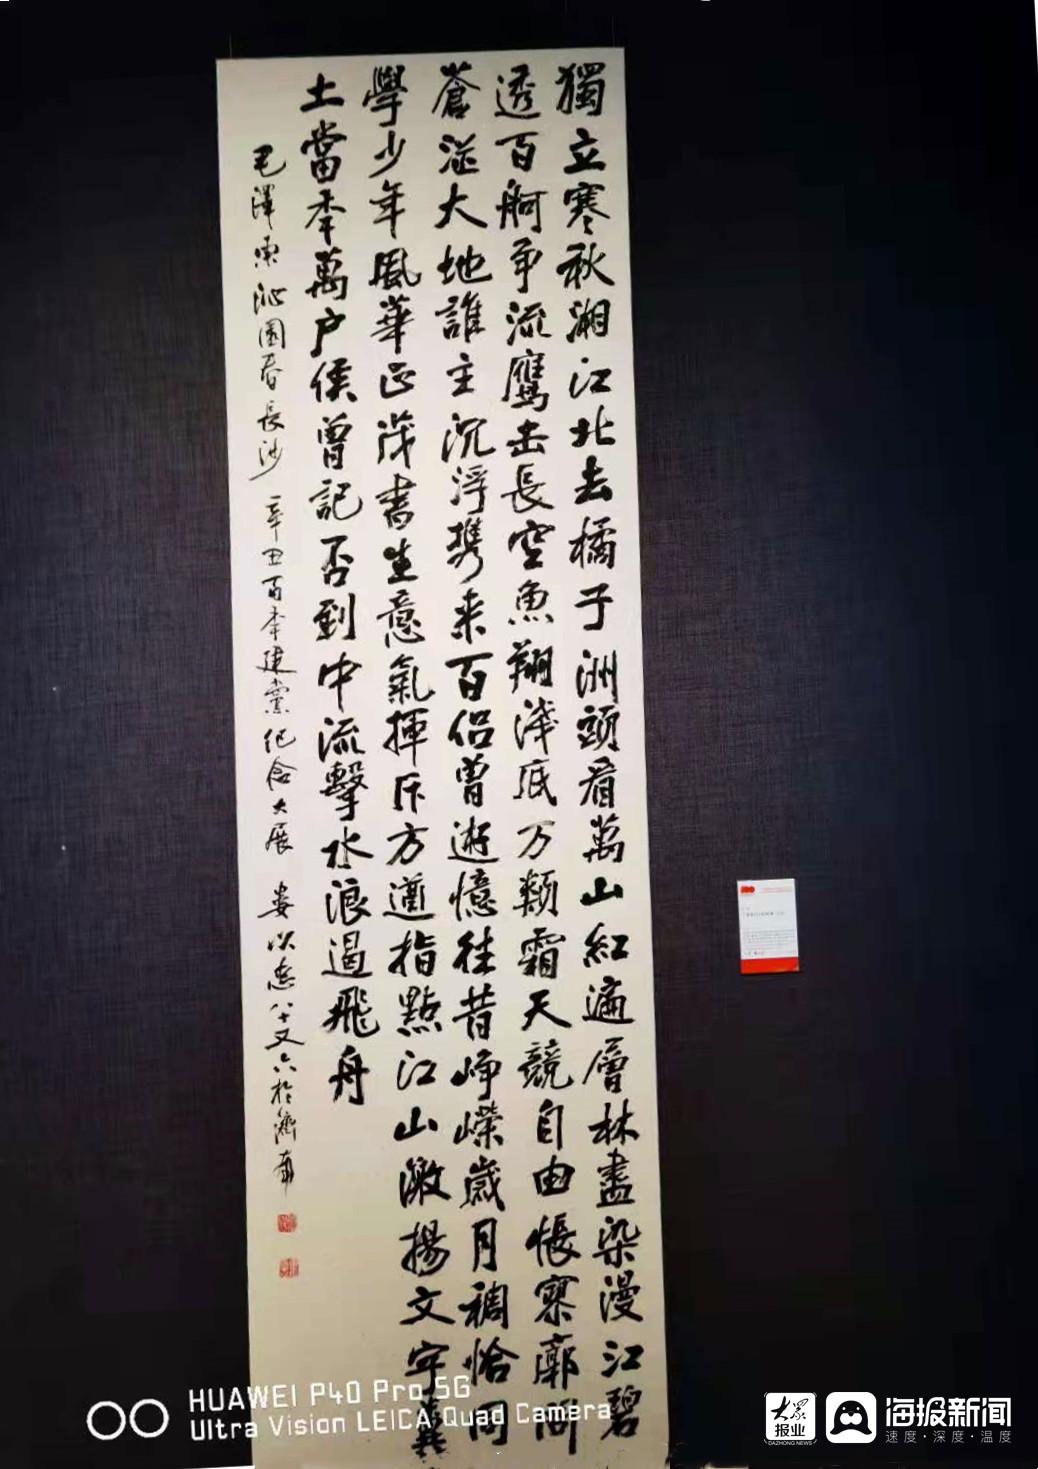 獨立寒秋湘江北去橘子洲頭看萬山紅遍層林盡染漫江碧
透百舸争流鹰击長空魚翔淺底万類霜天競自由悵寥廓问
蒼茫大地誰主沉浮携来百侣曾遊憶往昔崢嶸歲月稠恰同
學少年風華正茂書生意氣揮斥方遒指點江山激揚文字糞
土當年萬户侯曾記否到中流擊水浪遏飛舟
毛澤東沁園春長沙 辛丑百年建党纪念大展 娄以忠八十又六於濟南
HUAWEI P40 Pro 5G
Ultra Vision LEICA Quad Camera
大眾报业
DAZHONG NEWS
海报新闻
速度·深度·温度